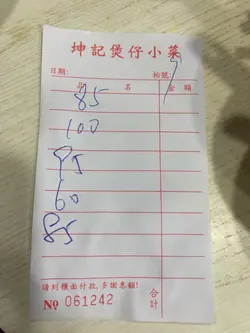 坤記煲仔小菜
日期: 枱號: 7
品 名 金額
85
100
95
60
85
請到櫃面付款,多謝惠顧!
合計
Nº 061242